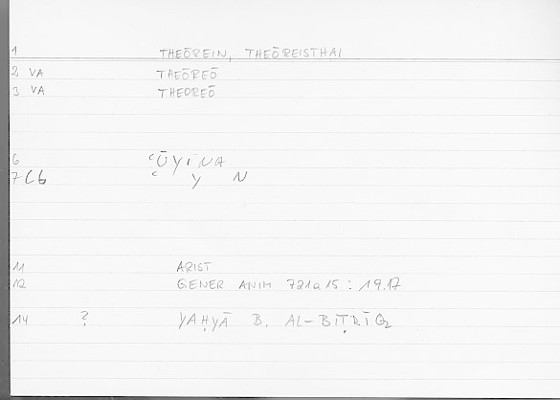 1 THEŌREIN, THEŌREISTHAI
2 VA THEŌREŌ
3 VA THEOREŌ
6 ʿŪYINA
7 Cb ʿ Y N
11 ARIST
12 GENER ANIM 721a15 : 19.17
14 ? YAḤYĀ B. AL-BIṬRĪQ